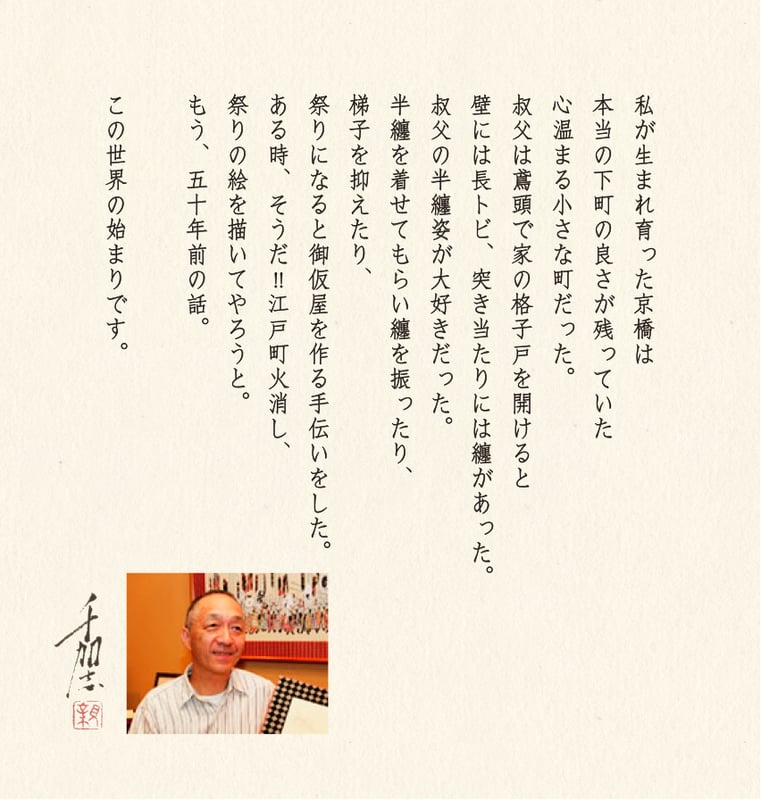 私が生まれ育った京橋は
本当の下町の良さが残っていた
心温まる小さな町だった。
叔父は鳶頭で家の格子戸を開けると
壁には長トビ、突き当たりには纏があった。
叔父の半纏姿が大好きだった。
半纏を着せてもらい纏を振ったり、
梯子を抑えたり、
祭りになると御仮屋を作る手伝いをした。
ある時、そうだ!!江戸町火消し、
祭りの絵を描いてやろうと。
もう、五十年前の話。
この世界の始まりです。
千加志
親